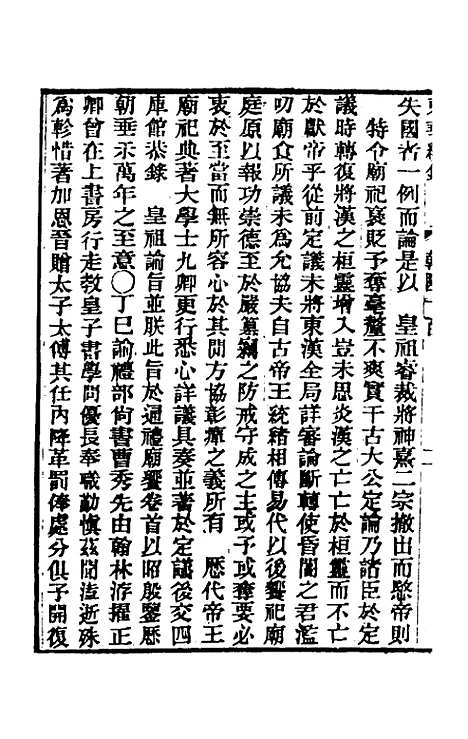 失國者一例而論是以　皇祖睿裁將神熹二宗撤出而愍帝則
特令廟祀襃貶予奪毫釐不爽實千古大公定論乃諸臣於定
議時轉復將漢之桓靈增入豈未思炎漢之亡亡於桓靈而不亡
於獻帝乎從前定議未將東漢全局詳審論斷轉使昏闇之君濫
叨廟食所議未爲允協夫自古帝王統緒相傳易代以後饗祀廟
庭原以報功崇德至於嚴篡竊之防戒守成之主或予或奪要必
衷於至當而無所容心於其閒方協彰癉之義所有　歷代帝王
廟祀典著大學士九卿更行悉心詳議具奏並著於定議後交四
庫館恭錄　皇祖諭旨並朕此旨於通禮廟饗卷首以昭殷鑒歷
朝垂示萬年之至意○丁巳諭禮部尙書曹秀先由翰林洊擢正
卿曾在上書房行走敎皇子書學問優長奉職勤愼茲聞溘逝殊
爲軫惜著加恩晉贈太子太傅其任內降革罰俸處分俱予開復